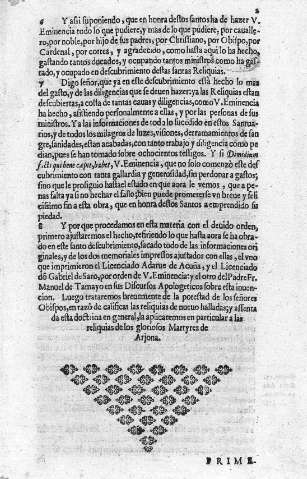 2
6 Y assi suponiendo, que en honra destos santos ha de hazer V.
Eminencia todo lo que pudiere, y mas de lo que pudiere, por cavalle-
ro, por noble, por hijo de sus padres, por Christiano, por Obispo, por
Cardenal, por cortes, y agradecido, como hasta aqui lo ha hecho,
gastando tantos ducados, y ocupando tantos ministros como ha gas-
tado, y ocupado en descubrimiento destas sacras Reliquias.
7 Digo señor, que ya en este descubrimiento està hecho lo mas
del gasto, y de las diligencias que se deuen hazer: ya las Reliquias estan
descubiertas, a costa de tantas causas y diligencias, como V. Eminencia
ha hecho, assistiendo personalmente a ellas, y por las personas de sus
ministros. Ya las informaciones de todo lo sucedido en estos Santua-
rios, y de todos los milagros de luzes, visiones, derramamientos de san-
gre, sanidades, estan acabadas, con tanto trabajo y diligencia como pe-
dian, pues se han tomado sobre ochocientos testigos. Y si Dimidium
facti qui bene cæpit, habet, V. Eminencia, que no solo començò este des-
cubrimiento con tanta gallardia y generosidad, sin perdonar a gastos;
sino que le prosiguio hasta el estado en que aora le vemos, que a pe-
nas falta ya si no hechar el fallo; bien puede prometerse vn breue y feli
cissimo fin a esta obra, que en honra destos Santos a emprendido su
piedad.
8 Y por que procedamos en esta materia con el deuido orden,
primero ajustaremos el hecho, refiriendo lo que hasta aora se ha obra-
do en este santo descubrimiento, sacado todo de las informaciones ori
ginales, y de los dos memoriales impressos ajustados con ellas, el vno
que imprimieron el Licenciado Adarue de Acuña, y el Licenciado
dõ Gabriel de Saro, por orden de V. Eminencia: y el otro del Padre Fr.
Manuel de Tamayo en sus Discursos Apologeticos sobre esta inuen-
cion. Luego trataremos breuemente de la potestad de los señores
Obispos, en razõ de calificar las reliquias de nueuo halladas; y assenta
da esta doctrina en general, la aplicaremos en particular a las
reliquias de los gloriosos Martyres de
Arjona.
PRIME-